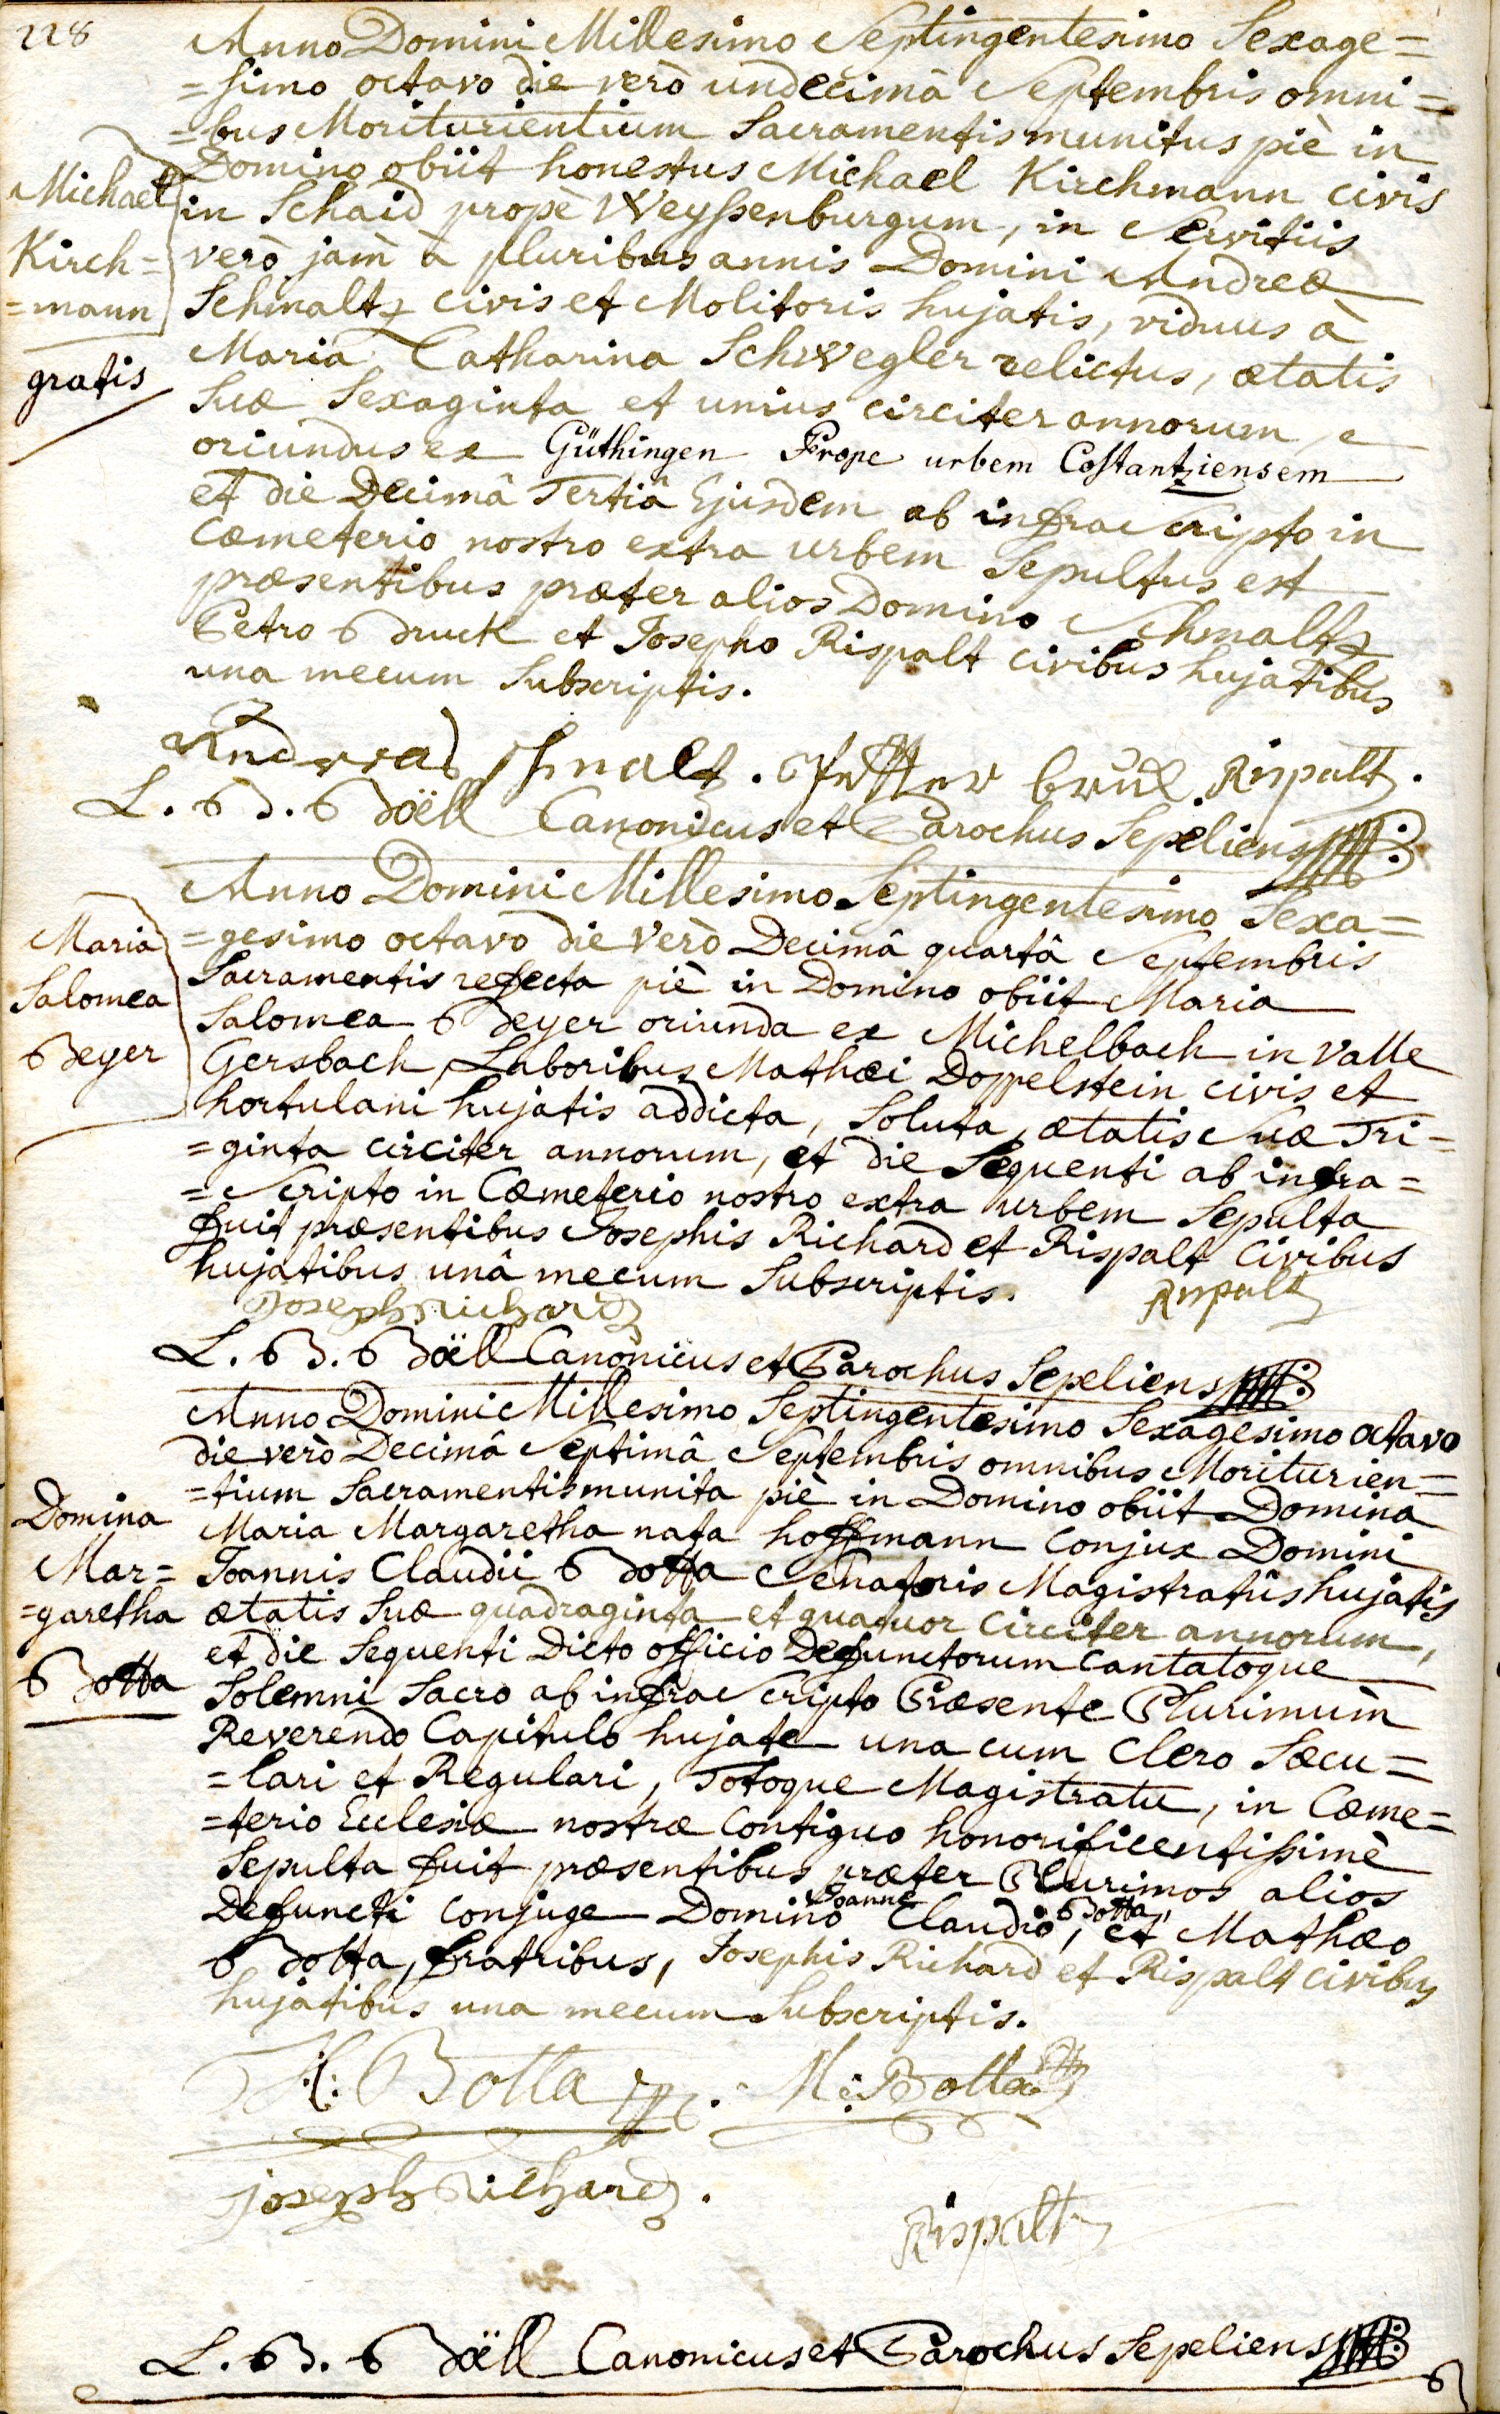 228
Anno Domini Millesimo Septingentesimo Sexage=
=simo octavo die verò undecimâ Septembris omni=
=bus Moriturientium Sacramentis munitus piè in
Domino obiit honestus Michael Kirchmann civis
in Schaid propè Weyssenburgum, in Servitiis
verò jam à pluribus annis Domini Andreæ
Schmaltz civis et Molitoris hujatis, viduus à
Maria Catharina Schwegler relictus, ætatis
Suæ Sexaginta et unius circiter annorum,
oriundus ex Güthingen Prope urbem Costantziensem
et die Decimâ Tertiâ Ejusdem ab infrascripto in
Cœmeterio nostro extra urbem Sepultus est
præsentibus præter alios Domino Schmaltz
Petro Bruck et Josepho Rispalt Civibus hujatibus
una mecum Subscriptis.
Michael
Kirch=
=mann
gratis
Andreas Schmaltz. Rispalt.
L. B. Böell Canonicus et Parochus Sepeliens
Anno Domini Millesimo Septingentesimo Sexa=
=gesimo octavo die verò Decimâ quartâ Septembris
Sacramentis refecta piè in Domino obiit Maria
Salomea Beyer oriunda ex Michelbach in Valle
Gersbach, Laboribus Mathæi Doppelstein civis et
hortulani hujatis addicta, Soluta, ætatis Suæ Tri=
=ginta circiter annorum, et die Sequenti ab infra=
=Scripto in Cœmeterio nostro extra urbem Sepulta
fuit præsentibus Josephis Richard et Rispalt Civibus
hujatibus unâ mecum Subscriptis.
Maria
Salomea
Beyer
Joseph Richard Rispalt
L. B. Böell Canonicus et Parochus Sepeliens
Anno Domini Millesimo Septingentesimo Sexagesimo octavo
die verò Decimâ Septimâ Septembris omnibus Moriturien=
=tium Sacramentis munita piè in Domino obiit Domina
Maria Margaretha nata hoffmann Conjux Domini
Joannis Claudii Botta Senatoris Magistratûs hujatis
ætatis Suæ quadraginta et quatuor Circiter annorum,
et die Sequenti Dicto officio Defunctorum Cantatoque
Solemni Sacro ab infraScripto Præsente Plurimùm
Reverendo Capitulo hujate una cum Clero Sæcu=
=lari et Regulari, Totoque Magistratu, in Cœme=
=terio Ecclesiæ nostræ Contiguo honorificentissimè
Sepulta fuit præsentibus præter Plurimos alios
Defuncti Conjuge Domino Joanne Claudio Botta, et Mathæo
Botta, fratribus, Josephis Richard et Rispalt Civibus
hujatibus una mecum Subscriptis.
Domina
Mar=
=garetha
Botta
Botta M: Botta
Joseph Richard.
Rispalt
L. B. Böell Canonicus et Parochus Sepeliens